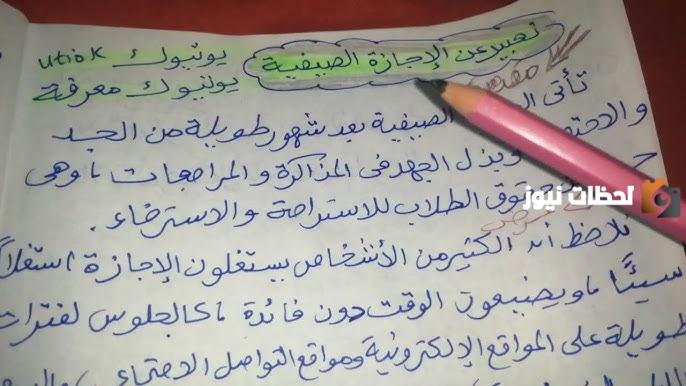 تعبير عن الإجازة الصيفية
يوتيوك utiok
يوتيوك معرفة
مقدمة
تأتى الصيفية بعد شهور طويلة من الجد
والاجتهاد وبذل الجهد فى المذاكرة والمراجعات ، وهى
حق من حقوق الطلاب للاستراحة والاسترخاء .
فنلاحظ أن الكثير من الأشخاص يستغلون الإجازة استغلالًا
سيئًا ، ويضيعون الوقت دون فائدة ، كالجلوس لفترات
طويلة على المواقع الإلكترونية ومواقع التواصل الاجتماعى
لحظات نيوز